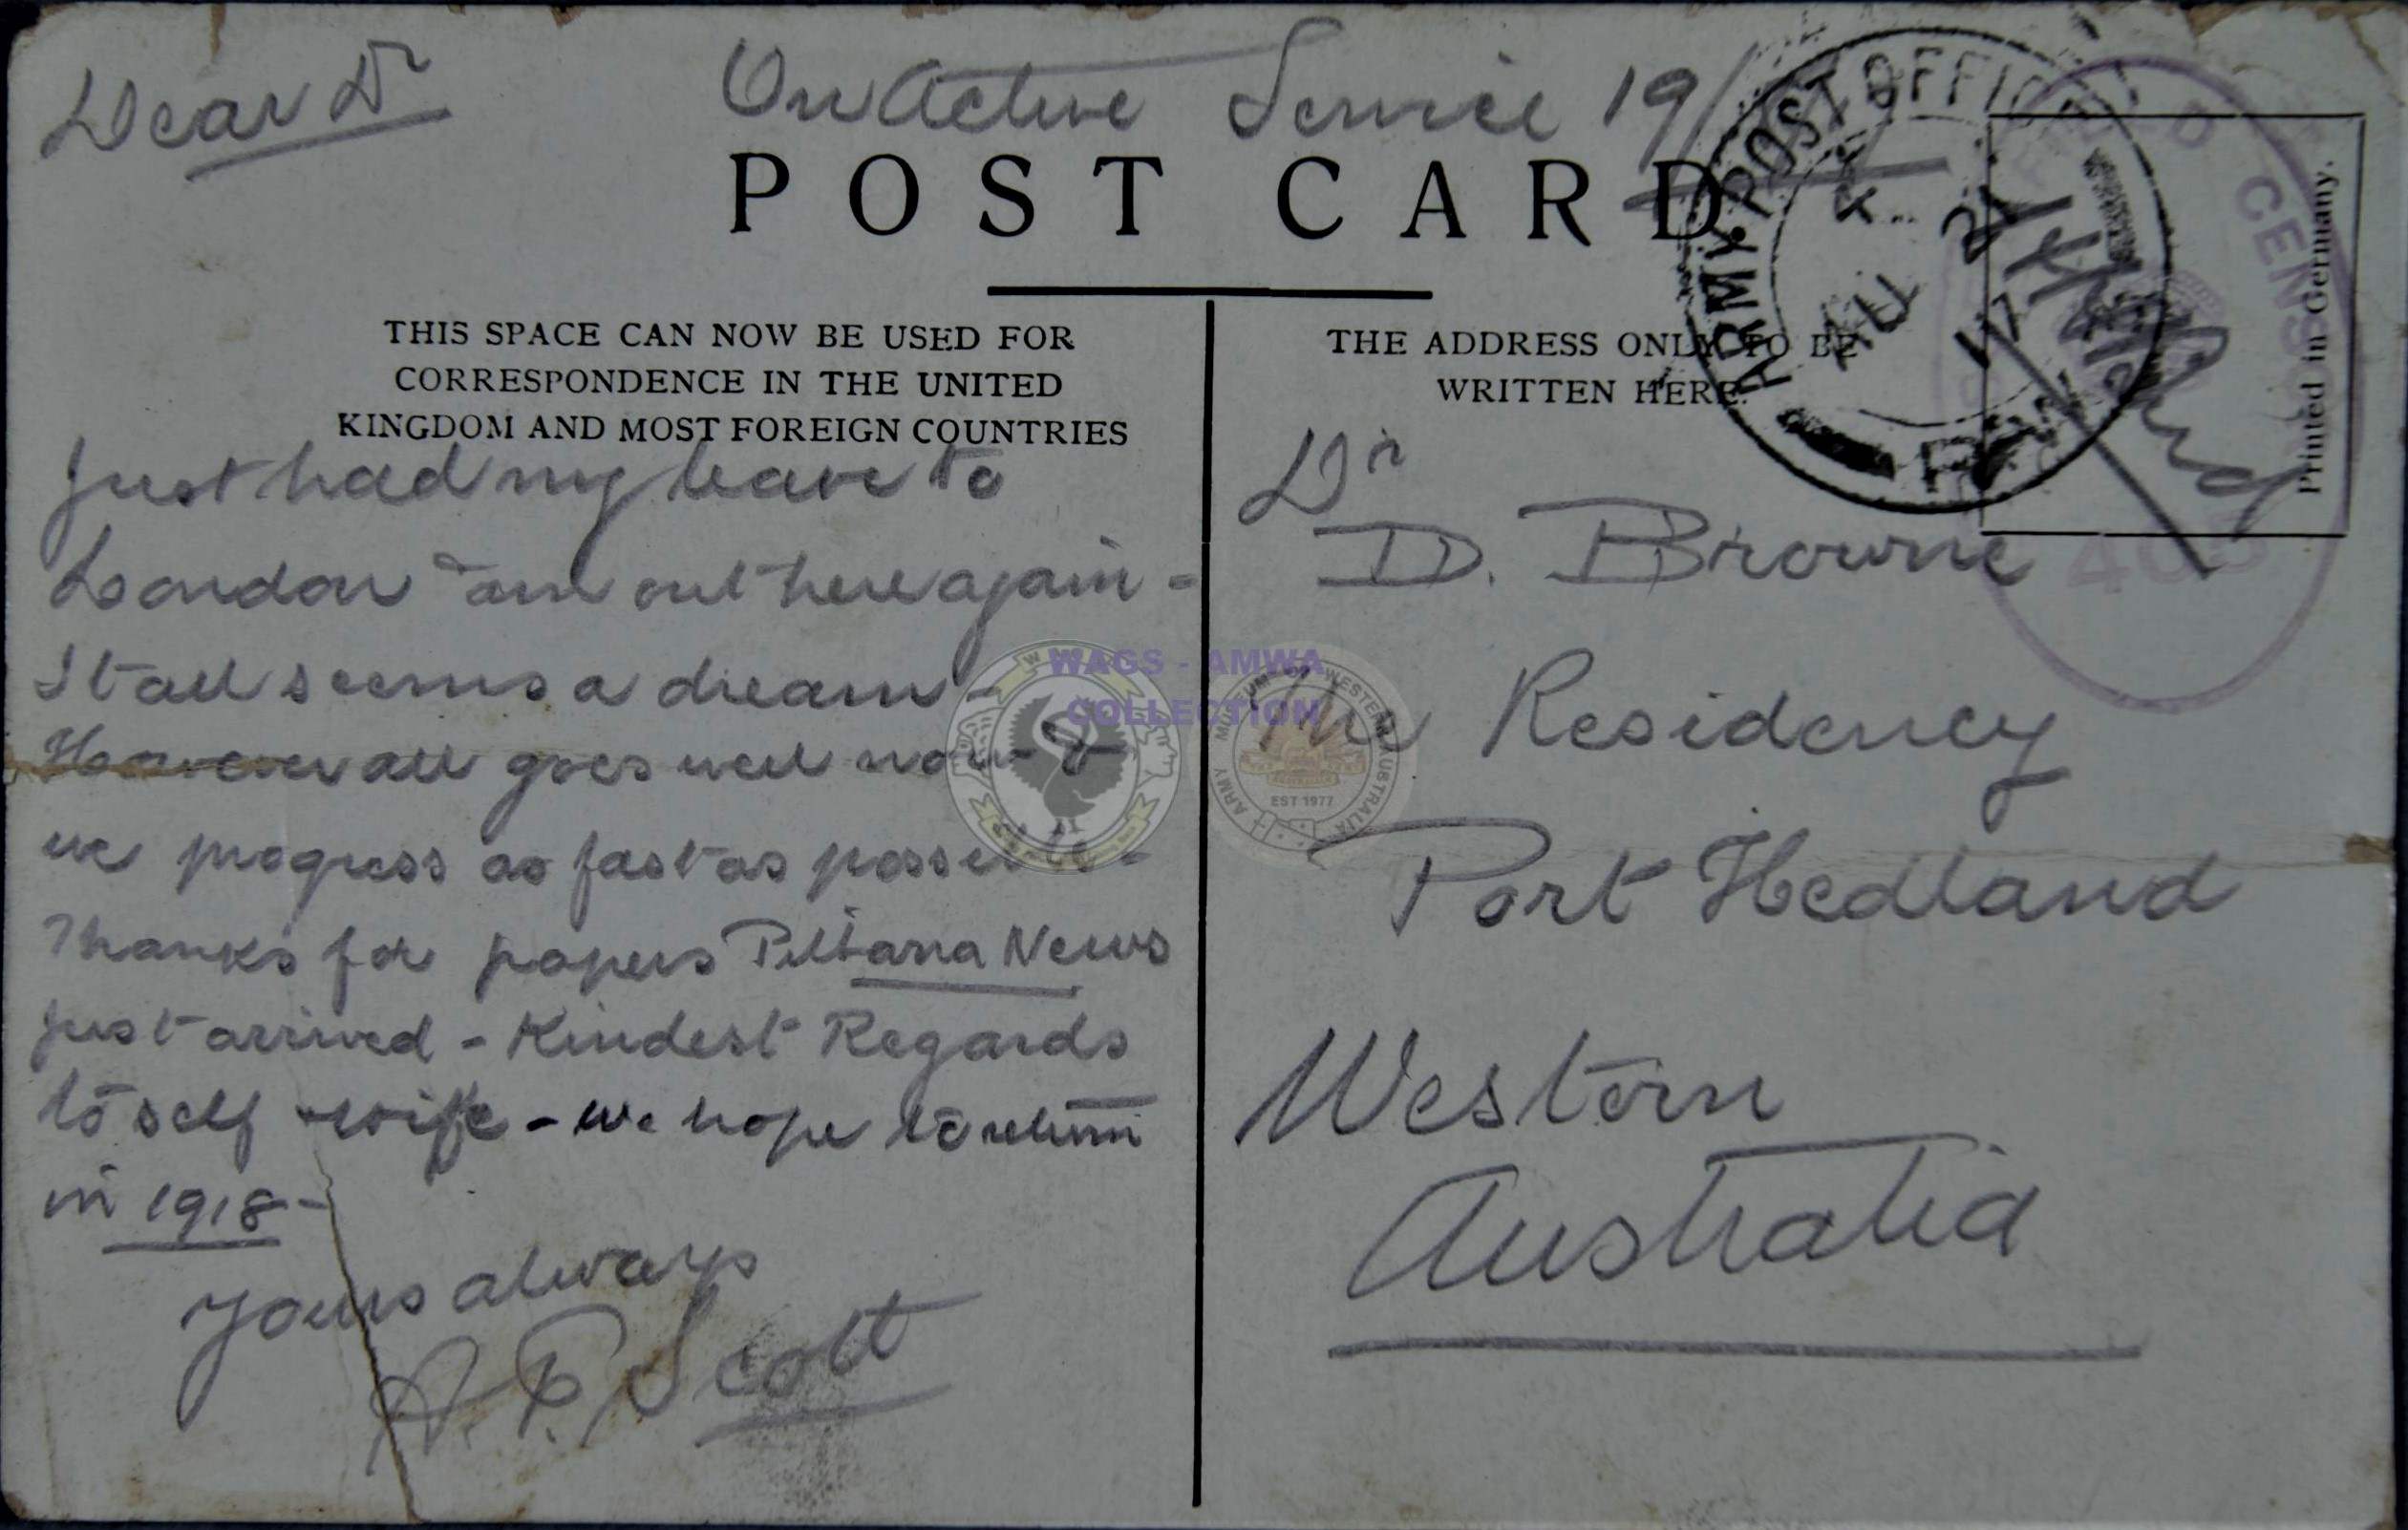 Dear Dr
On Active Service 19/
POST CARD
THIS SPACE CAN NOW BE USED FOR
CORRESPONDENCE IN THE UNITED
KINGDOM AND MOST FOREIGN COUNTRIES
THE ADDRESS ONLY TO BE
WRITTEN HERE.
ARMY. POST OFFICE
AU 21
17
CENSOR
Printed in Germany.
Just had my leave to
London & am out here again -
It all seems a dream -
However all goes well now &
we progress as fast as possible -
Thanks for papers Pilbarra News
just arrived - Kindest Regards
to self & wife - we hope to return
in 1918 -
Yours always
A. P. Scott
Dr
D. Browne
The Residency
Port Hedland
Western
Australia
WAGS - AMWA
COLLECTION
ARMY MUSEUM OF WESTERN AUSTRALIA
EST 1977